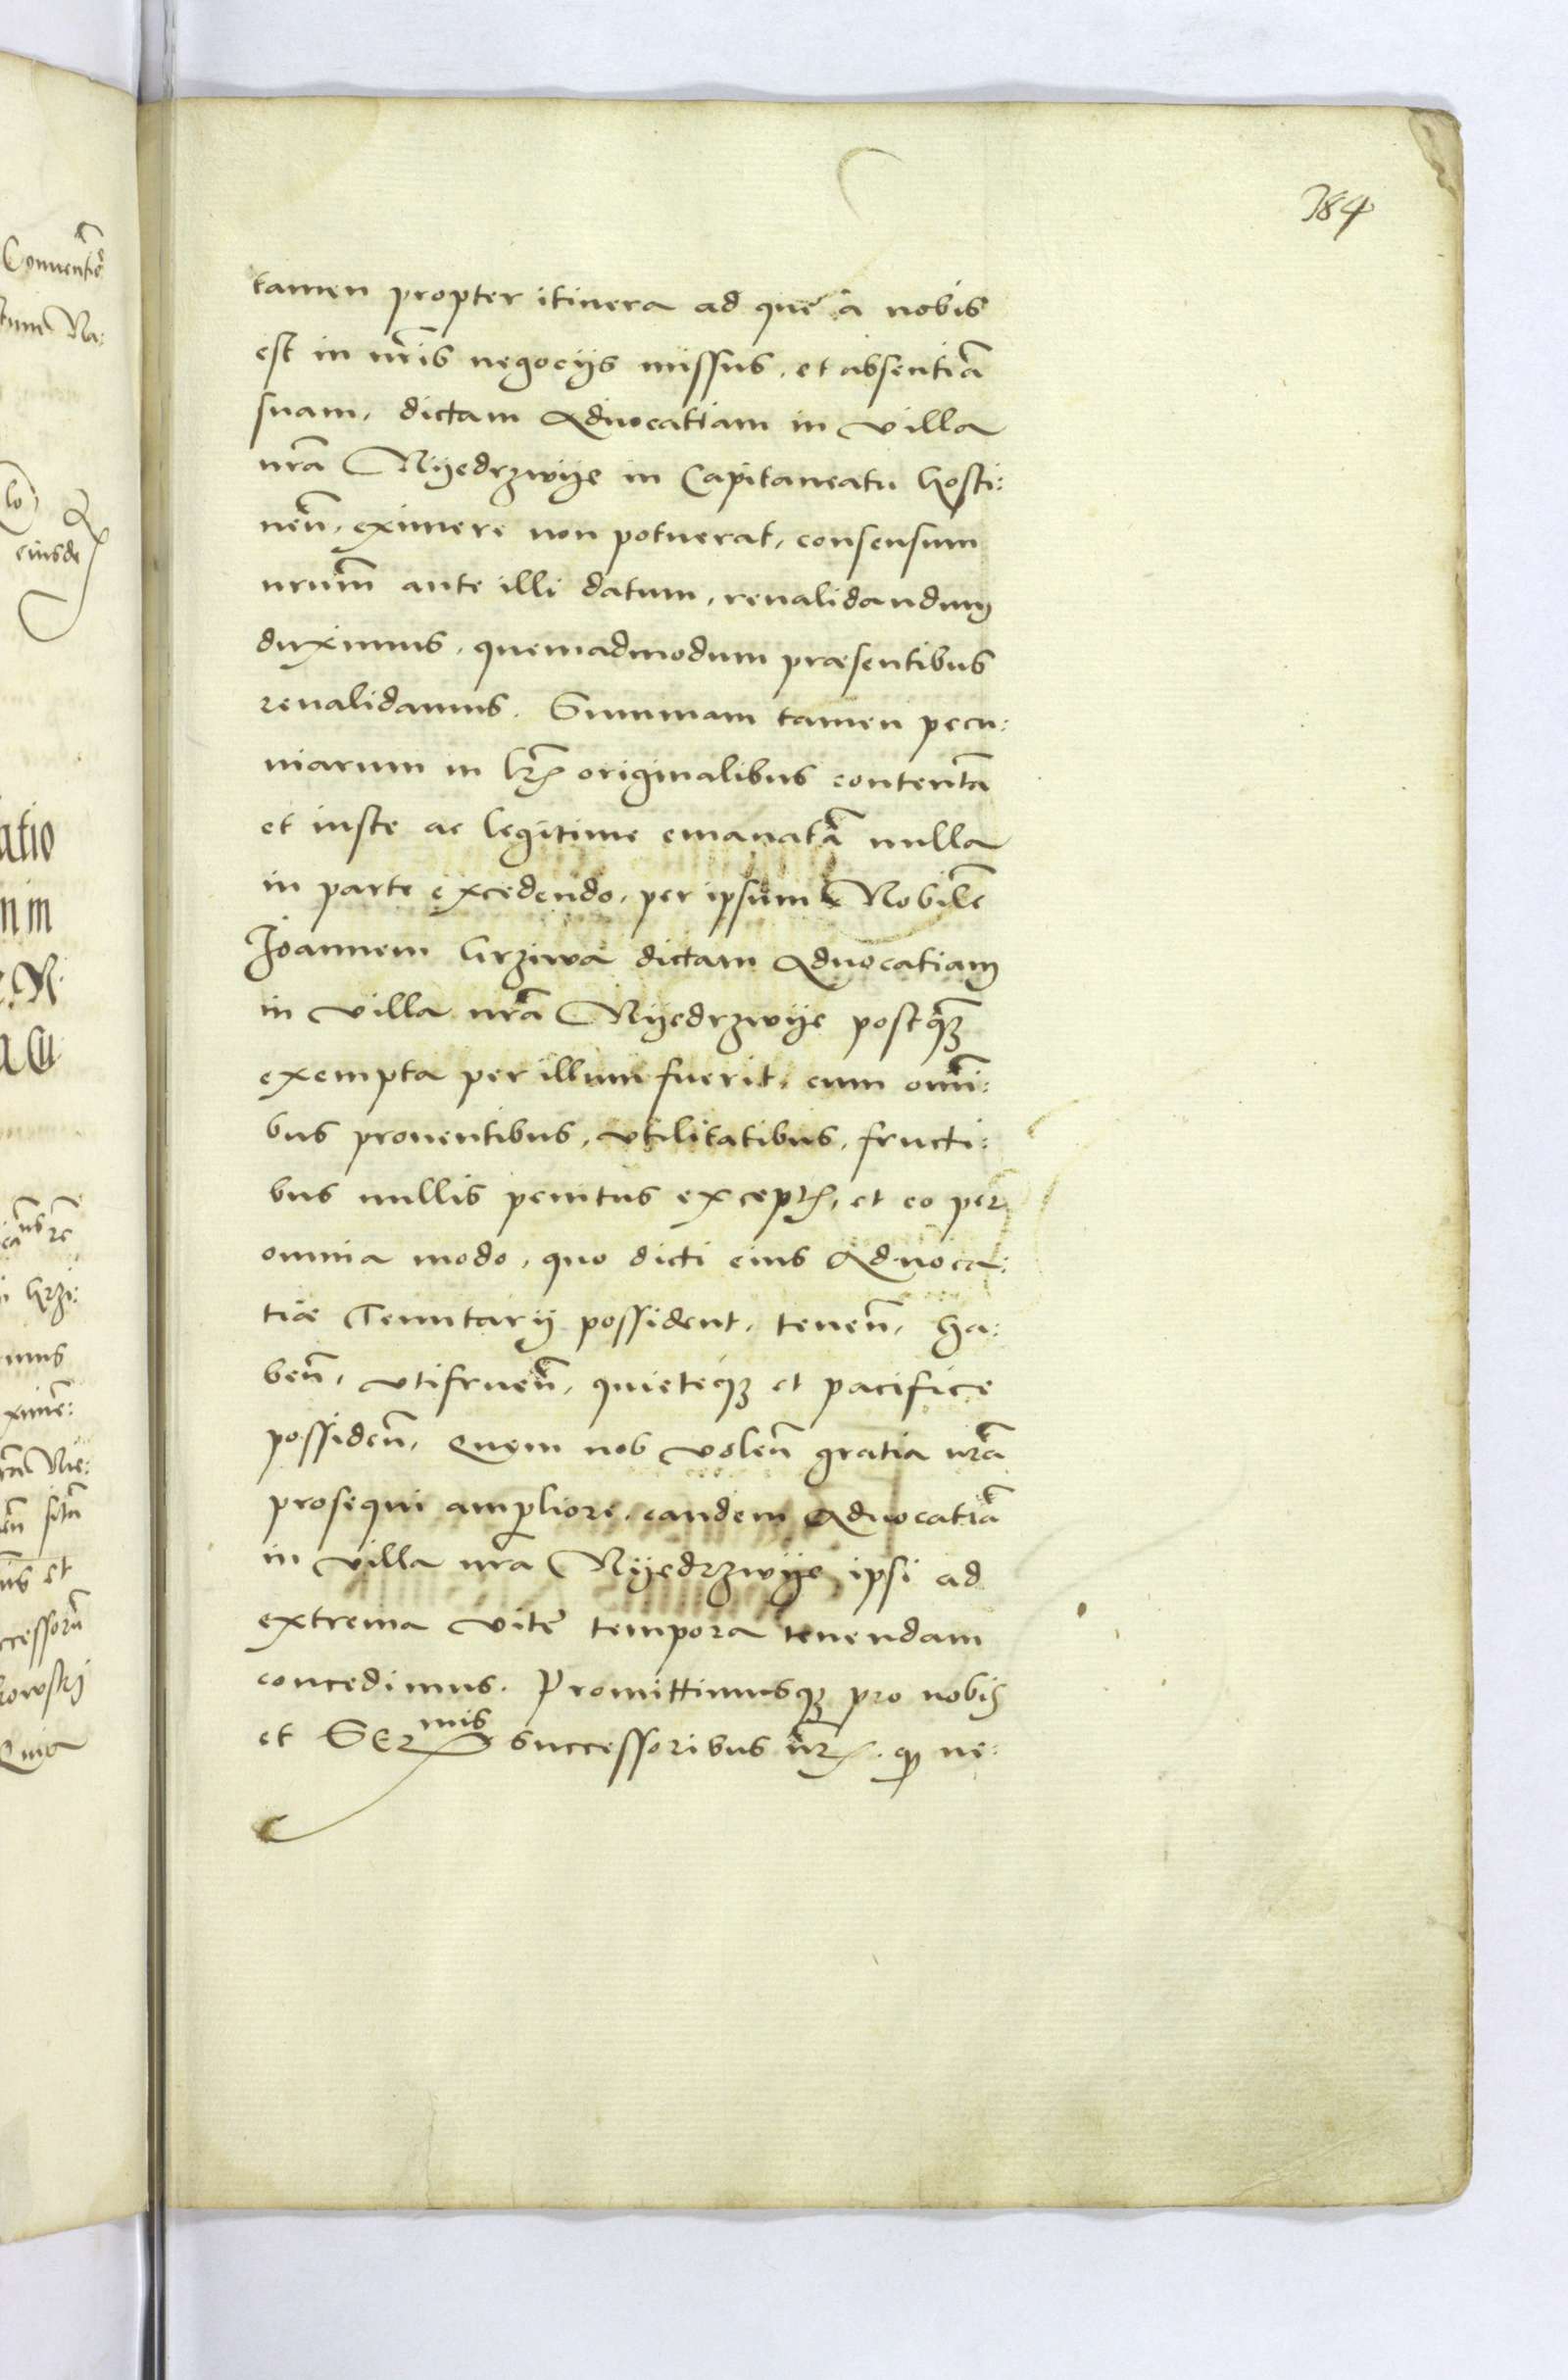 384
tamen propter itinera ad quę a nobis
est in nr̃is negocijs missus, et absentiã
suam, dictam Aduocatiam in villa
nr̃a Nyedrzwye in Capitaneatu hosti:
neñ, eximere non potuerat, consensum
nrum̃ ante illi datum, reualidandum
duximus, quemadmodum præsentibus
reualidamus. Summam tamen pecu:
niarum in lr̃is originalibus contentã
et iuste ac legitime emanatã nulla
in parte excedendo, per ipsum Nobilẽ
Joannem hrziwa dictam Aduocatiam
in villa nr̃a Nyedrzwye postq̃ȝ
exempta per illum fuerit, cum omñi:
bus prouentibus, vtilitatibus, fructi:
bus nullis penitus exceptis, et eo per
omnia modo, quo dicti eius Aduoca:
tiæ Tenutarij possident, teneñ, ha:
beñ, vtifrueñ, quieteqȝ et pacifice
possideñ, Quem nob voleñ gratia nr̃a
prosequi ampliore, eandem Aduocatiã
in villa nr̃a Nyedrzwye ipsi ad
extrema vitę tempora tenendam
concedimus. Promittimusqȝ pro nobis
et SER^mis successoribus nr̃is. qp ne:
Conuentiõ
ejusdẽ
atio